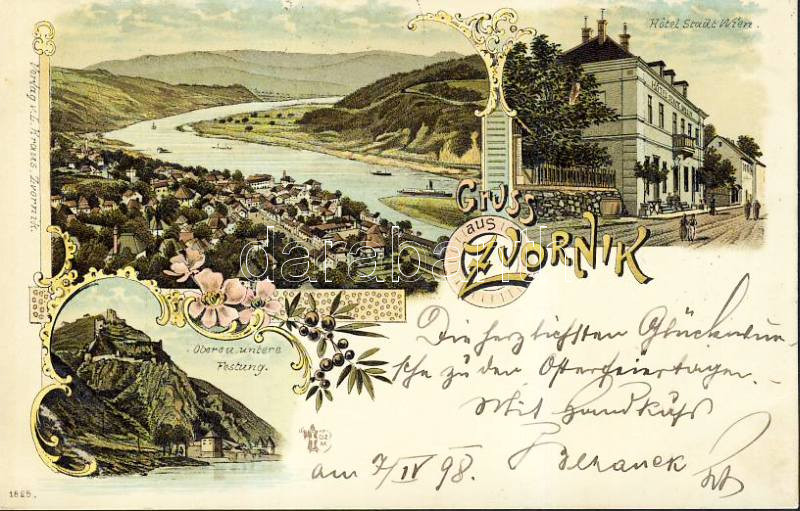 Hôtel Stadt Wien.
Verlag v. L. Kraus, Zvornik.
Gruss
aus
ZVORNIK
darabanth
Obere u. untere
Festung.
Die herzlichsten Glückwün-
sche zu den Osterfeiertagen. –
Mit Handkuß
am 7/IV 98.
1825.